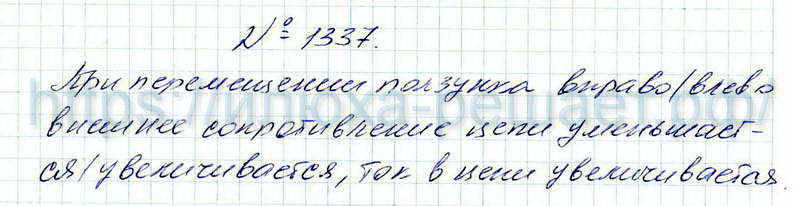 № 1337.
При перемещении ползунка вправо/влево
внешнее сопротивление цепи уменьшает-
ся/увеличивается, ток в цепи увеличивается